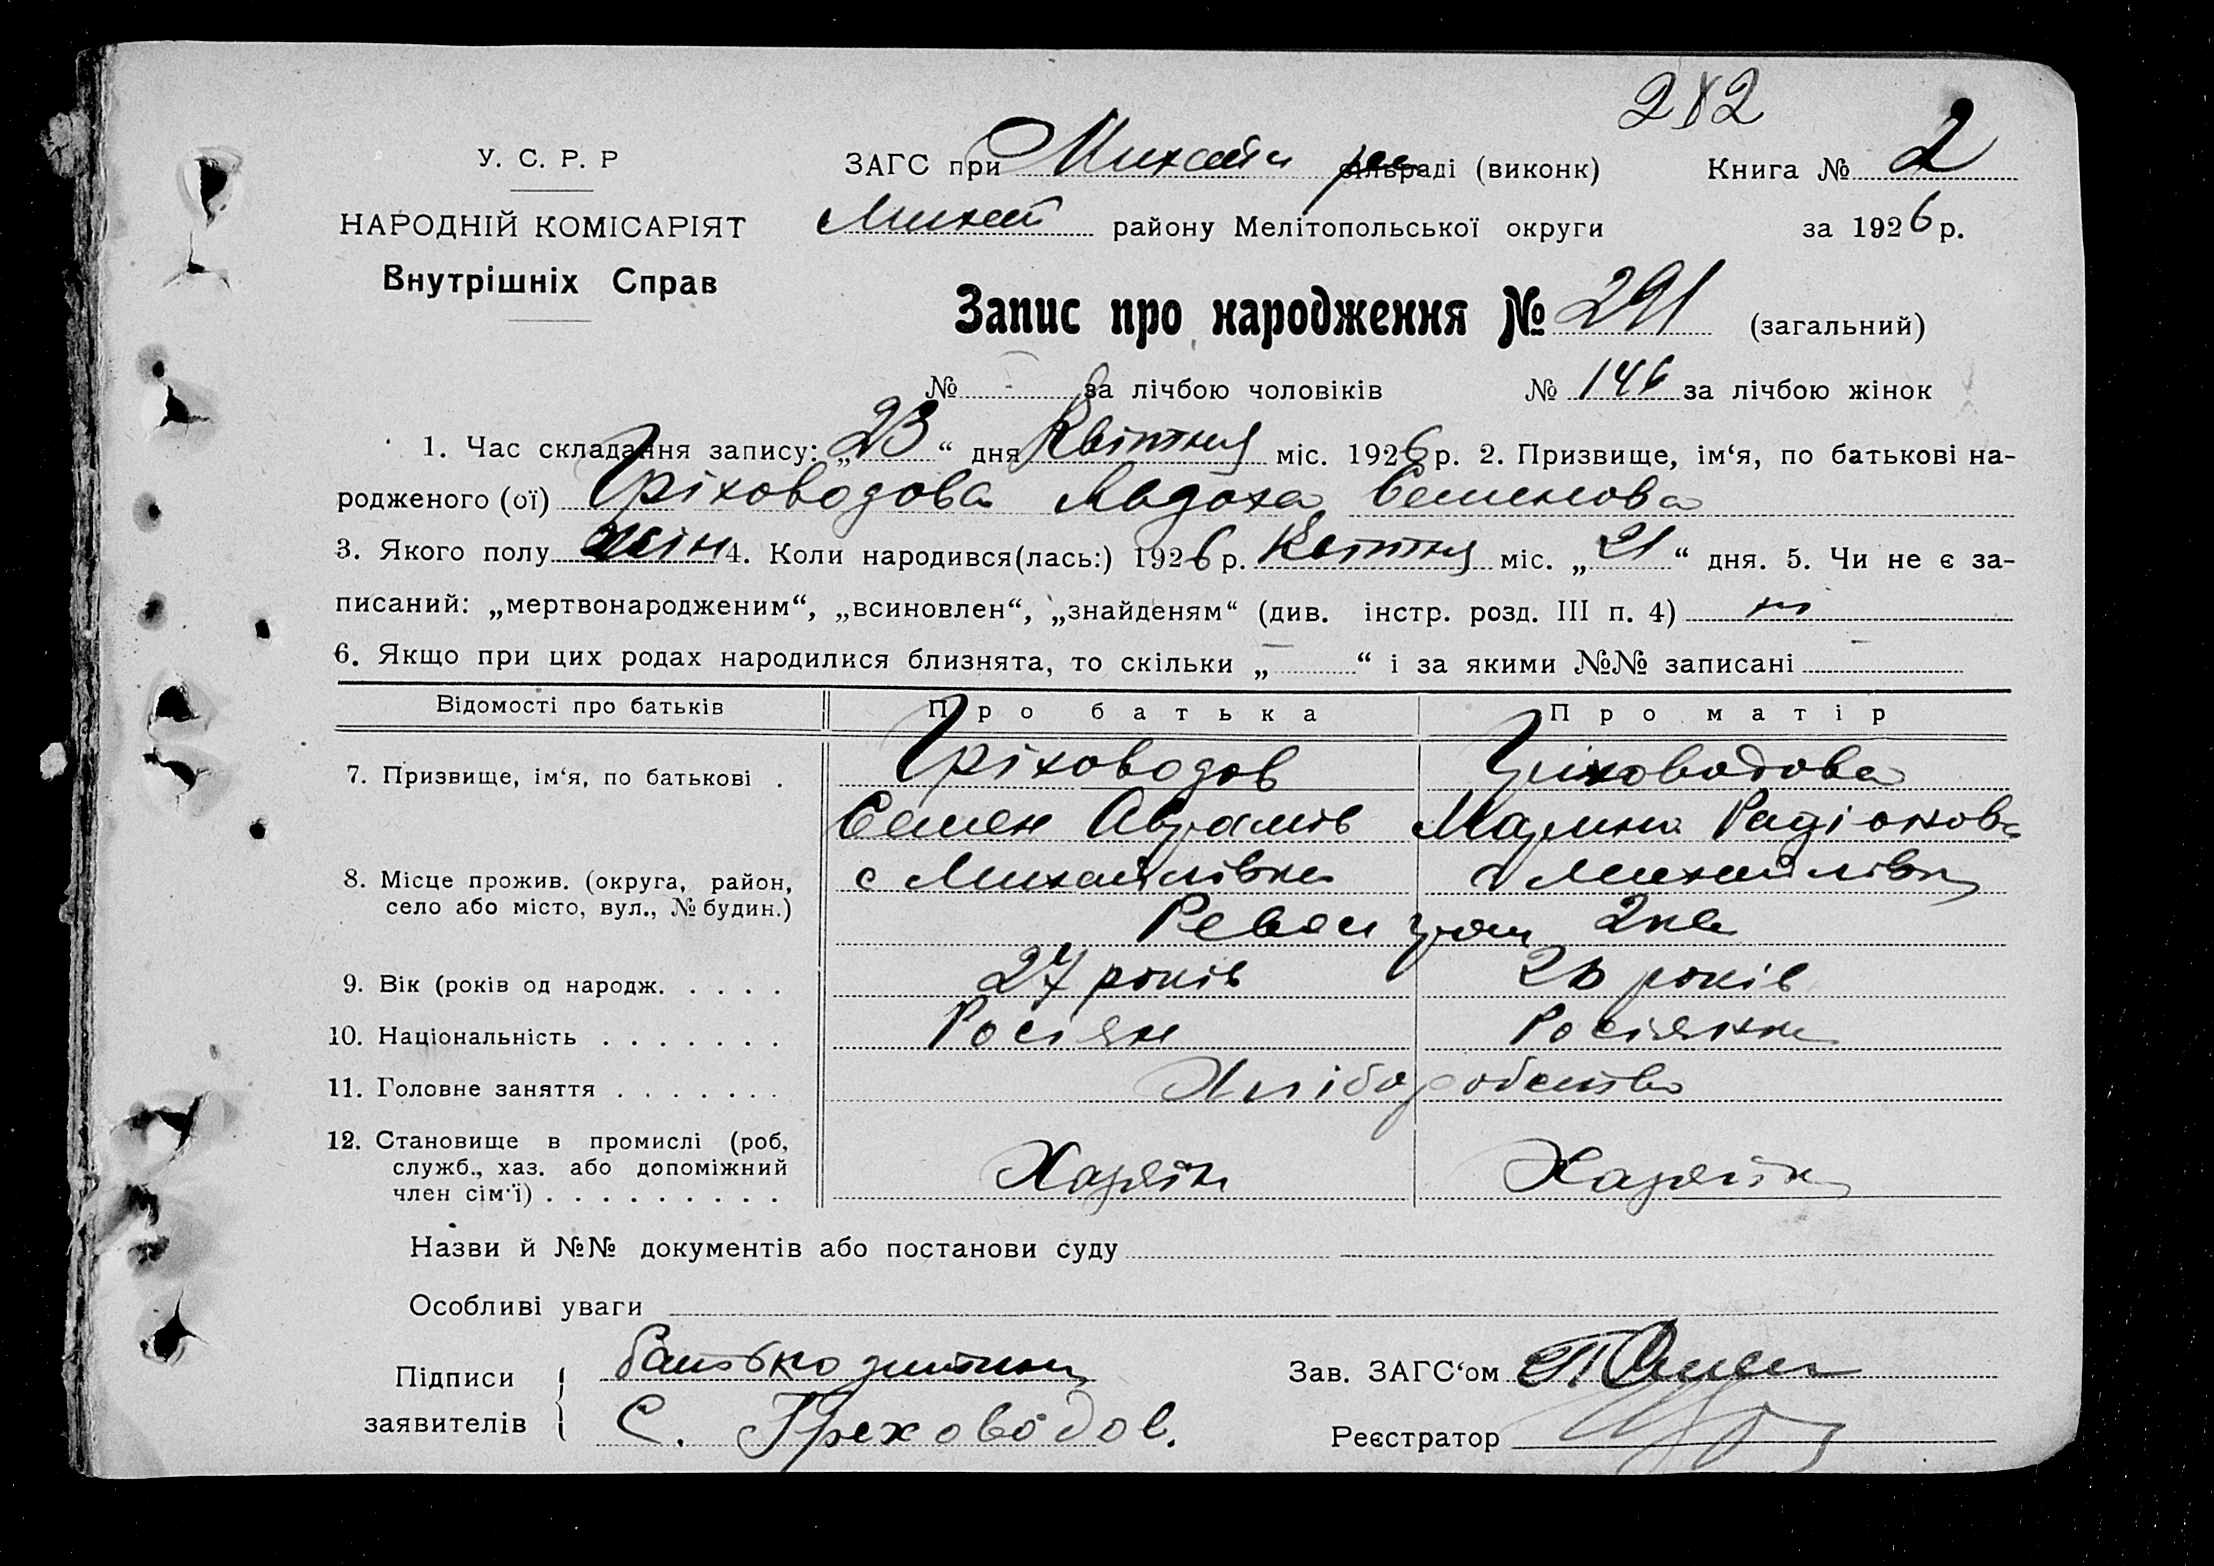 282
У. С. Р. Р
НАРОДНІЙ КОМІСАРІЯТ
Внутрішніх Справ
ЗАГС при Михайл рай сільраді (виконк) Книга № 2
Михай району Мелітопольської округи за 1926 р.
Запис про народження № 291 (загальний)
№ - за лічбою чоловіків № 146 за лічбою жінок
1. Час складання запису: „23“ дня Квітня міс. 1926 р. 2. Призвище, ім‘я, по батькові на-
родженого (ої) Гріховодова Явдоха Семенова
3. Якого полу жін 4. Коли народився(лась:) 1926 р. Квітня міс. „21“ дня. 5. Чи не є за-
писаний: „мертвонародженим“, „всиновлен“, „знайденям“ (див. інстр. розд. III п. 4) ні
6. Якщо при цих родах народилися близнята, то скільки „—“ і за якими №№ записані
Відомості про батьків Про батька Про матір
7. Призвище, ім‘я, по батькові . Гріховодов Гриховодова
Семен Аврамів Марина Радіонова
8. Місце прожив. (округа, район, село або місто, вул., № будин.) с Михайлівка с Михайлівка
Револ 2 кв
9. Вік (років од народж. . . . . 27 років 26 років
10. Національність . . . . . . . Росіян Росіянка
11. Головне заняття . . . . . . . Хліборобство
12. Становище в промислі (роб, служб., хаз. або допоміжний член сім‘ї) . . . . . . . . . Хазяїн Хазяїн
Назви й №№ документів або постанови суду
Особливі уваги
Підписи заявителів { батько дитини
С. Греховодов.
Зав. ЗАГС‘ом
Реєстратор